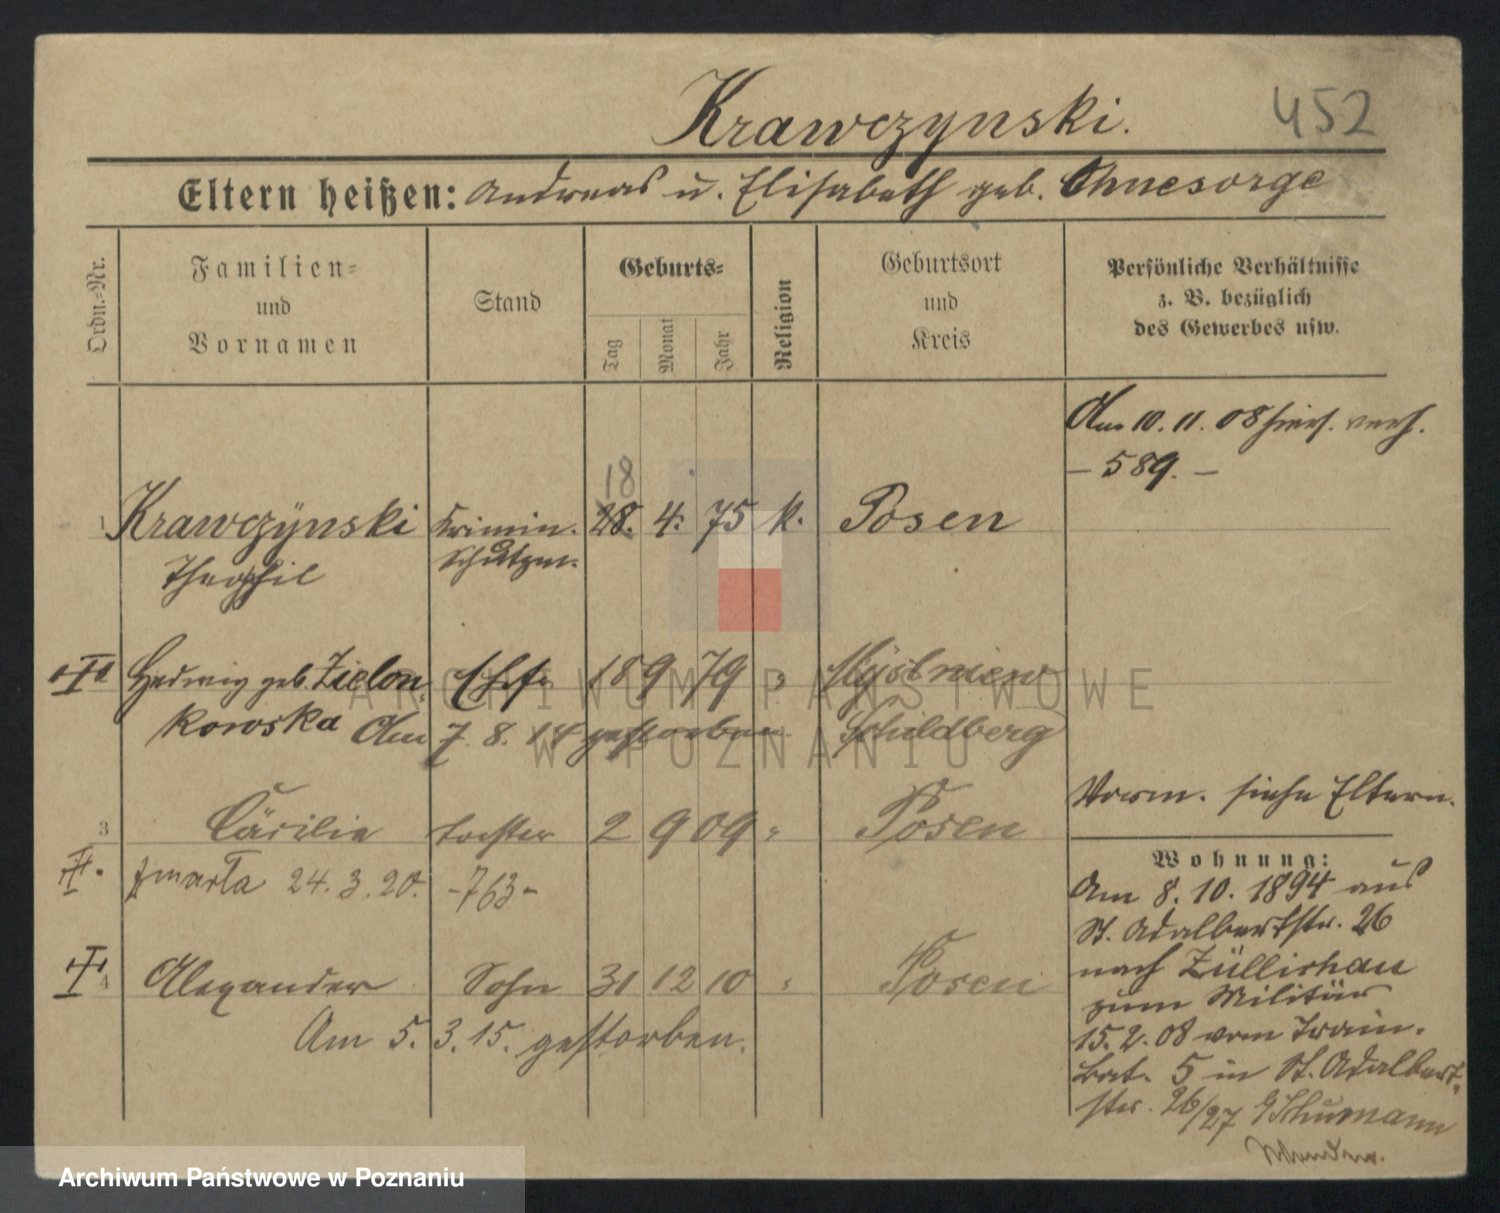 452
Krawczynski.
Eltern heißen: Andreas u. Elisabeth geb. Ohnesorge
Ordn.-Nr.
Familien-
und
Vornamen
Stand
Geburts-
Tag
Monat
Jahr
Religion
Geburtsort
und
Kreis
Persönliche Verhältnisse
z. B. bezüglich
des Gewerbes usw.
Am 10. 11. 08 hier verh.
– 589. –
18
1 Krawczÿnski Krimin. 28. 4. 75 k. Posen
Theophil Schutzm.
Hedwig geb. Zielon- Ehefr. 18 9 79 Myslniew
kowska Am 7. 8. 14 gestorben Schildberg
3 Cäcilie Tochter 2 9 09 " Posen
24. 3. 20. -763-
4 Alexander Sohn 31 12 10 " Posen
Am 5. 3. 15. gestorben.
Vorm. siehe Eltern.
Wohnung:
Am 8. 10. 1894 aus
St. Adalbertstr. 26
nach Züllichau
zum Militär
15. 2. 08 vom Train-
Bat. 5 in St. Adalbert-
str. 26/27 Schumann
ARCHIWUM PAŃSTWOWE
W POZNANIU
Archiwum Państwowe w Poznaniu